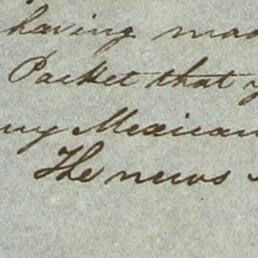 having mad
Packet that y
my Mexican
The news